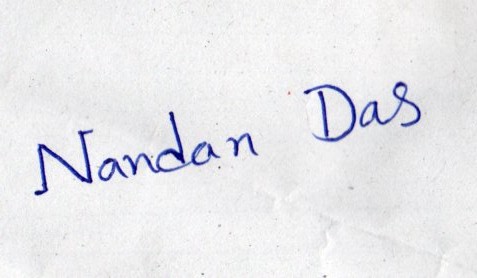 Nandan Das